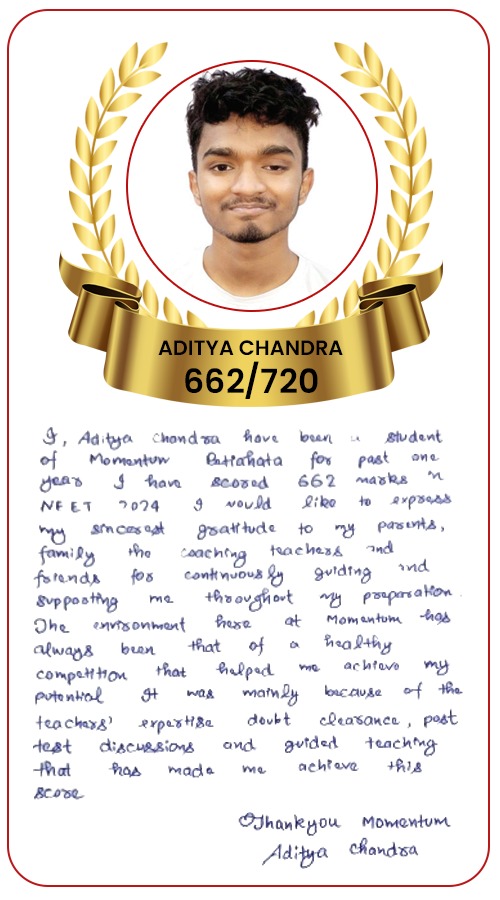 ADITYA CHANDRA
662/720
I, Aditya Chandra have been a student
of Momentum Betiahata for past one
year I have scored 662 marks in
NEET 2024 I would like to express
my sincerest gratitude to my parents,
family the coaching teachers and
friends for continuously guiding and
supporting me throughout my preparation.
The environment here at Momentum has
always been that of a healthy
competition that helped me achieve my
potential It was mainly because of the
teachers' expertise doubt clearance, post
test discussions and guided teaching
that has made me achieve this
score
Thankyou Momentum
Aditya chandra